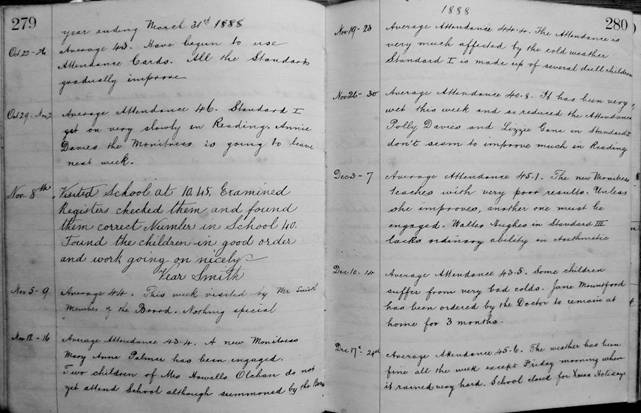 279
year ending March 31st 1888
Oct 22-26 Average 43. Have begun to use
Attendance Cards. All the Standards
gradually improve
Oct 29-Nov 2 Average Attendance 46. Standard I
get on very slowly in Reading. Annie
Davies the Monitress is going to leave
next week.
Nov. 8th. Visited School at 10.45. Examined
Registers checked them and found
them correct Number in School 40.
Found the children in good order
and work going on nicely
Smith
Nov 5-9 Average 44. This week visited by Mr Smith
Member of the Board. Nothing special
Nov 12-16 Average Attendance 43.4. A new Monitress
Mary Anne Palmer has been engaged.
Two children of Mrs Howells do not
yet attend School although summoned by the
1888
280
Nov 19-23 Average Attendance 44.4. The Attendance is
very much affected by the cold weather
Standard I is made up of several dull children
Nov 26-30 Average Attendance 40.8. It has been very
wet this week and so reduced the Attendance
Polly Davies and Lizzie in Standard
don't seem to improve much in Reading
Dec 3-7 Average Attendance 45.1. The new Monitress
teaches with very poor results. Unless
she improves, another one must be
engaged. Walter Hughes in Standard III
lacks ordinary ability in Arithmetic
Dec 10.14 Average Attendance 43.5. Some children
suffer from very bad colds. Jane Mountford
has been ordered by the Doctor to remain at
home for 3 months.
Dec 17. Average Attendance 45.6. The weather has been
fine all the week except Friday morning when
it rained very hard. School closed for Xmas Holidays